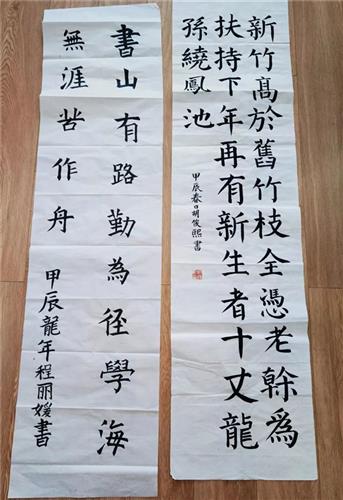 新竹髙於舊竹枝全憑老榦為
扶持下年再有新生者十丈龍
孫繞鳳池
甲辰春日胡俊熙書
書山有路勤為径學海
無涯苦作舟
甲辰龍年程丽媛書